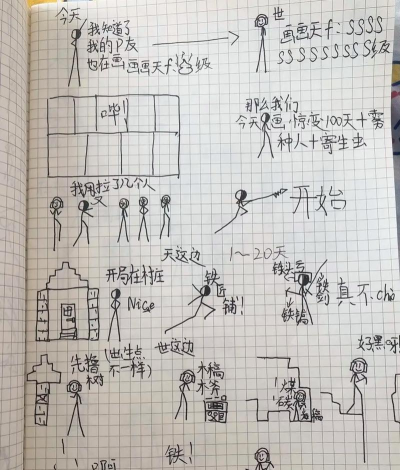 今天
我知道了
我的P友
也在画画画天f:S级
世
画画天f:SSSS
SSSSSSSS级
哗!
那么我们
今天画惊变100天+
种人+寄生虫
我又拉了几个人
开始
天这边
1~20天
开局在村庄
Nice
铁匠
铺!
铁头亏
铁剑
铁镐
真不cha
世这边
先撸
树
(出生点
不一样)
木稿
木斧
煤
石
稿
好黑呀
铁!